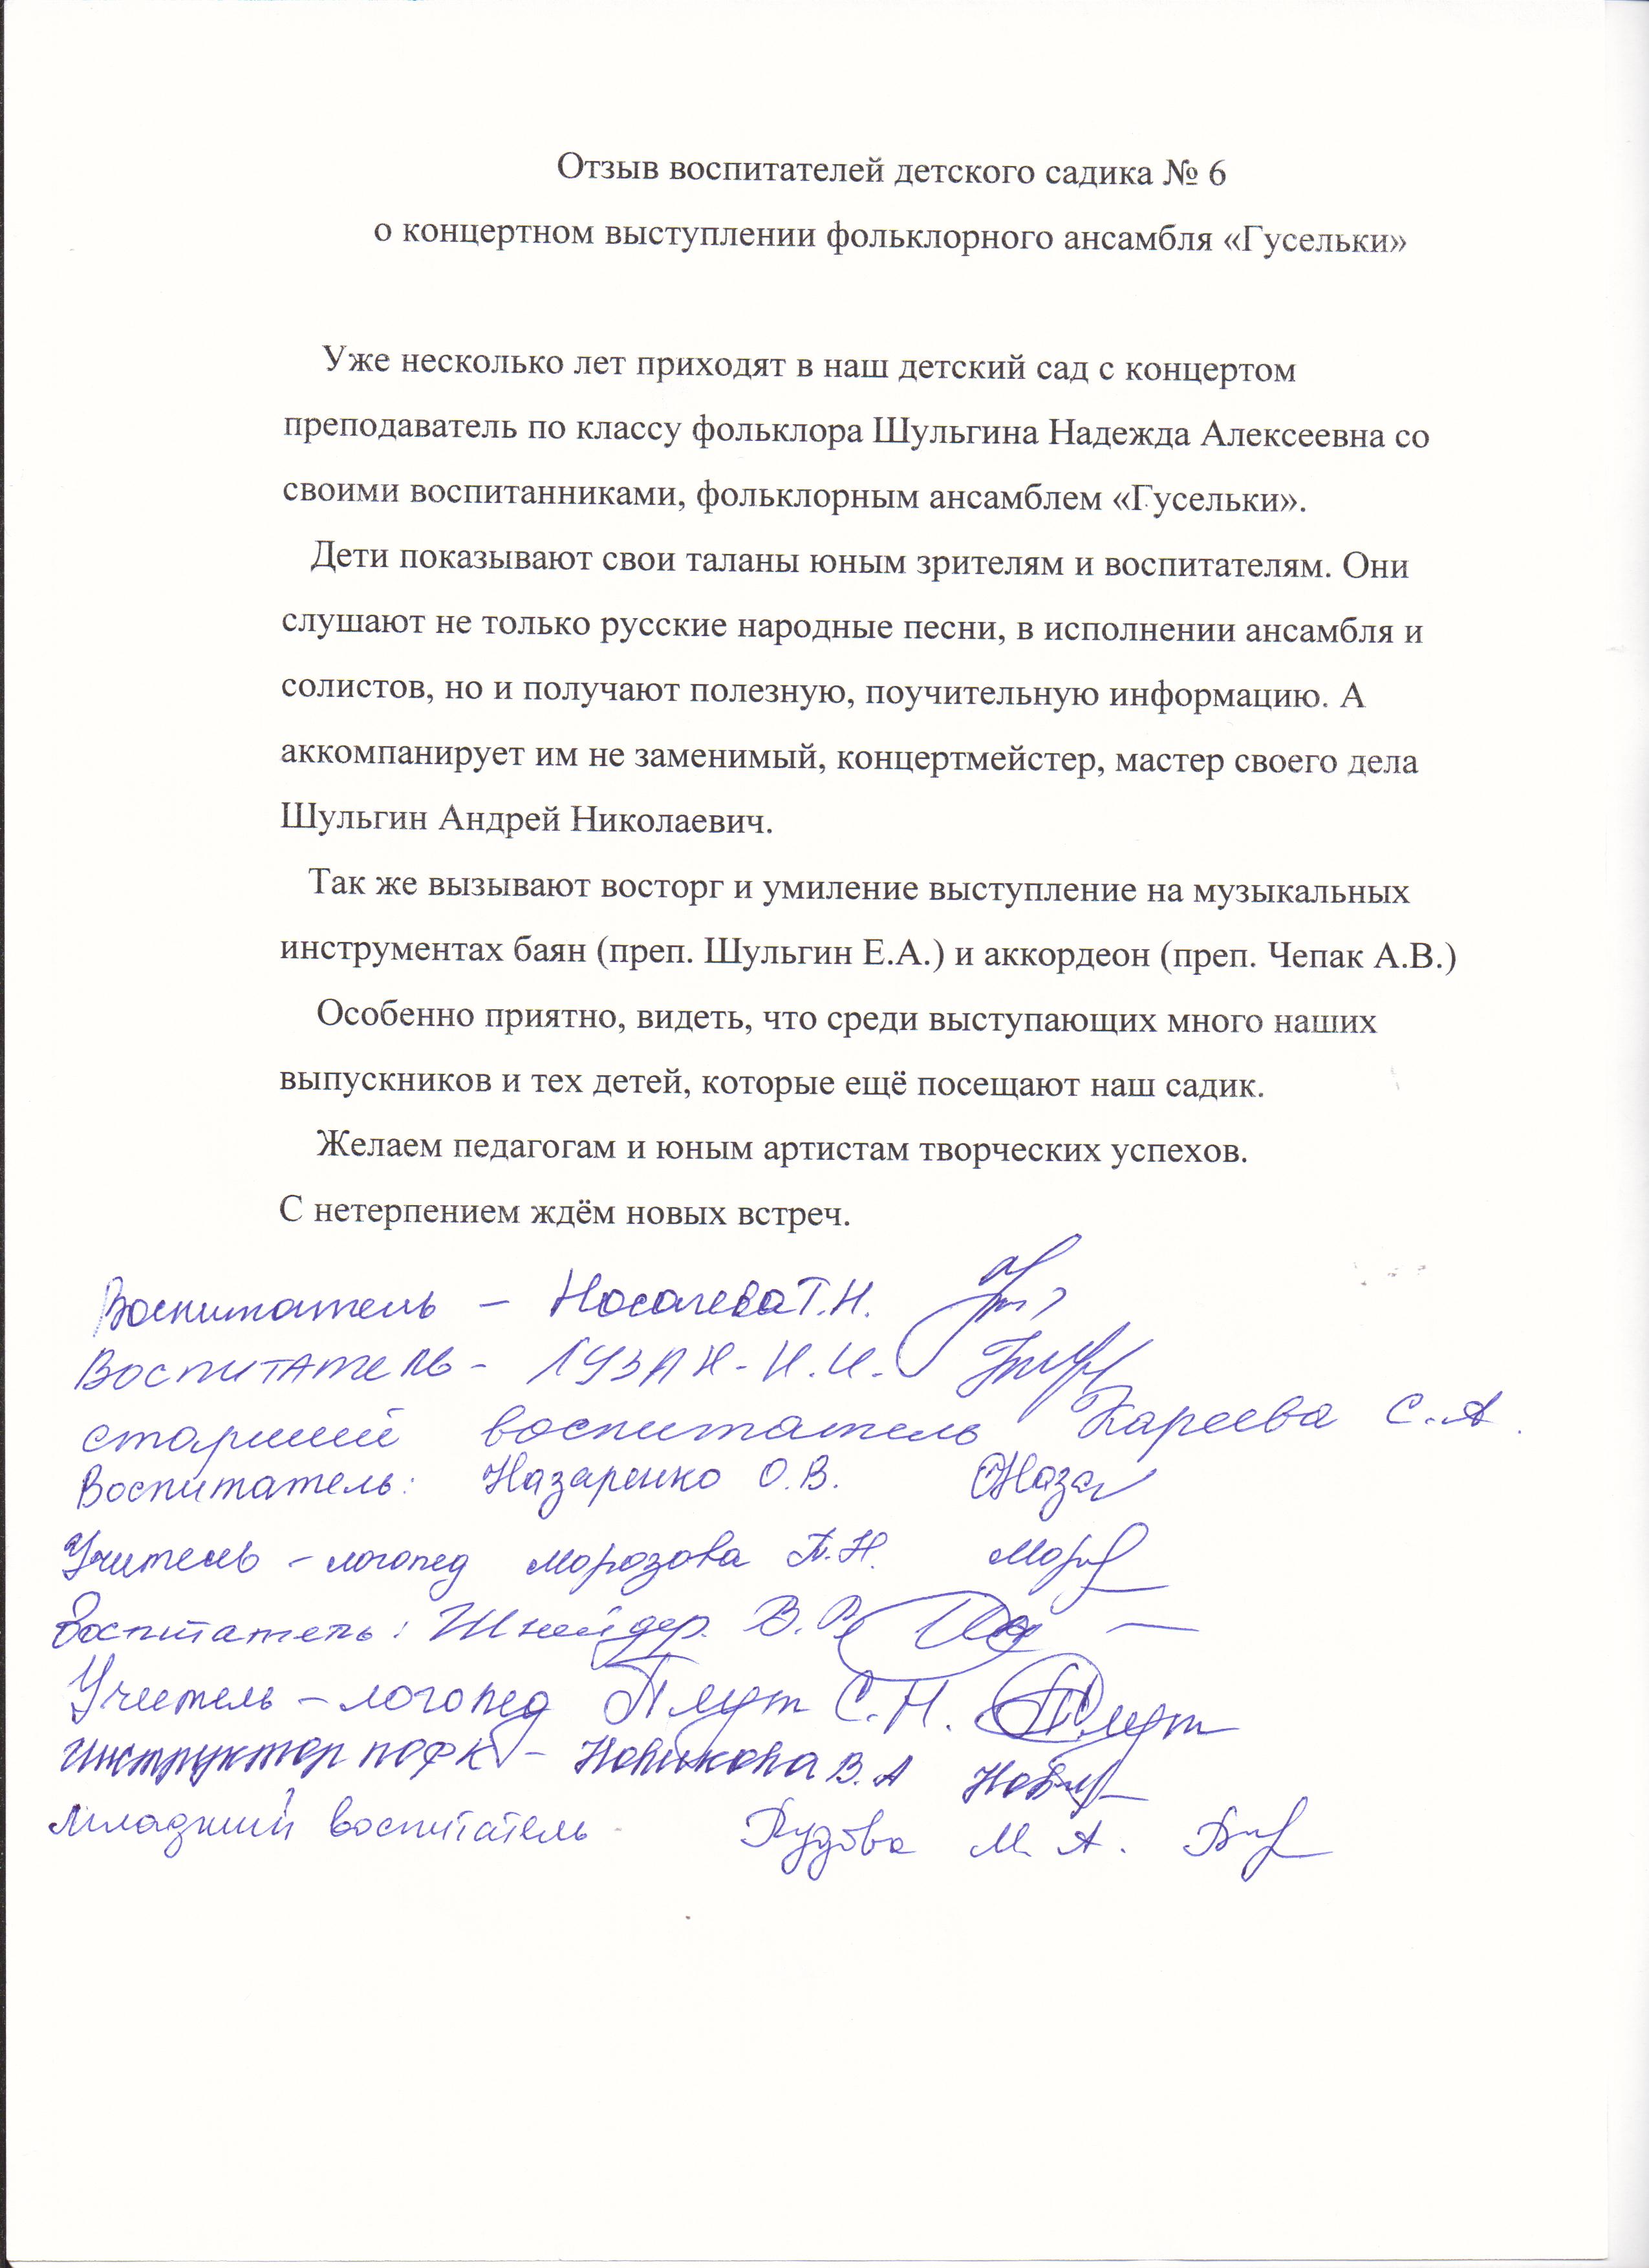 Отзыв воспитателей детского садика № 6
о концертном выступлении фольклорного ансамбля «Гусельки»
Уже несколько лет приходят в наш детский сад с концертом
преподаватель по классу фольклора Шульгина Надежда Алексеевна со
своими воспитанниками, фольклорным ансамблем «Гусельки».
Дети показывают свои таланы юным зрителям и воспитателям. Они
слушают не только русские народные песни, в исполнении ансамбля и
солистов, но и получают полезную, поучительную информацию. А
аккомпанирует им не заменимый, концертмейстер, мастер своего дела
Шульгин Андрей Николаевич.
Так же вызывают восторг и умиление выступление на музыкальных
инструментах баян (преп. Шульгин Е.А.) и аккордеон (преп. Чепак А.В.)
Особенно приятно, видеть, что среди выступающих много наших
выпускников и тех детей, которые ещё посещают наш садик.
Желаем педагогам и юным артистам творческих успехов.
С нетерпением ждём новых встреч.
Воспитатель – Т.Н.
Воспитатель - Гузан - И.И.
старший воспитатель Кареева С.А.
Воспитатель: Назаренко О.В.
Учитель - логопед Морозова Т.Н.
Воспитатель: Шнейдер. В.
Учитель – логопед Плут С.Н.
Инструктор по ФК – Новикова В.А
Младший воспитатель М.А.